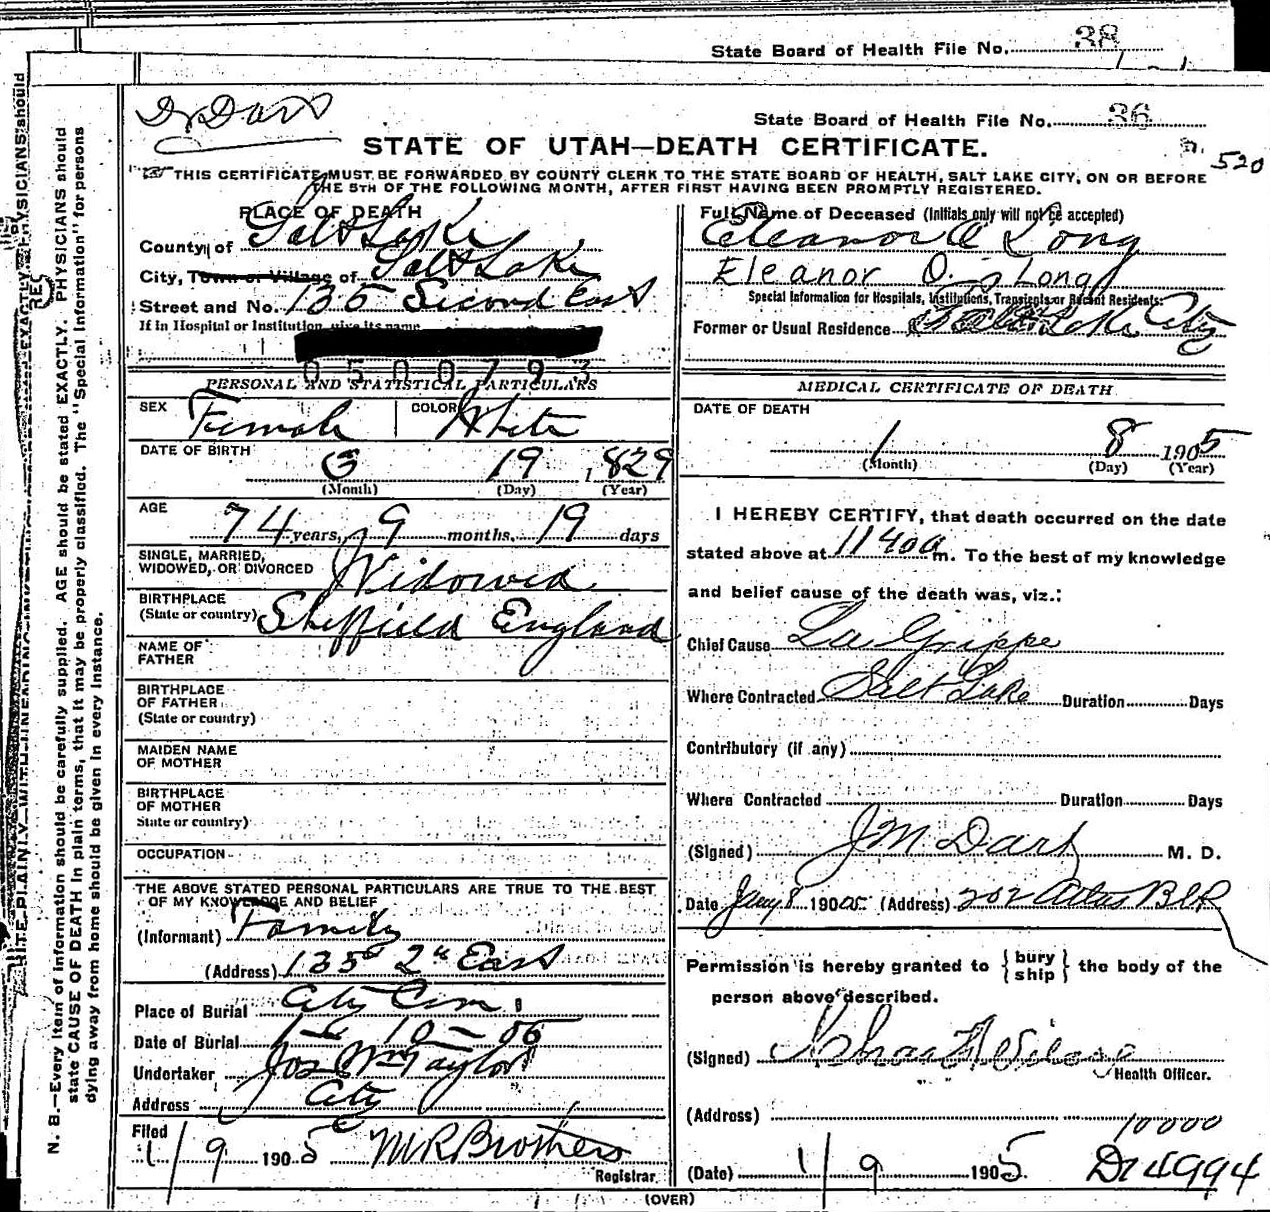 State Board of Health File No. 38
Dr Dart
State Board of Health File No. 36
STATE OF UTAH—DEATH CERTIFICATE.
520
THIS CERTIFICATE MUST BE FORWARDED BY COUNTY CLERK TO THE STATE BOARD OF HEALTH, SALT LAKE CITY, ON OR BEFORE
THE 5TH OF THE FOLLOWING MONTH, AFTER FIRST HAVING BEEN PROMPTLY REGISTERED.
PLACE OF DEATH
County of Salt Lake
City, Town or Village of Salt Lake
Street and No. 135 Second East
If in Hospital or Institution, give its name
0500793
PERSONAL AND STATISTICAL PARTICULARS
SEX Female COLOR White
DATE OF BIRTH
19 1829
(Month) (Day) (Year)
AGE
74 years, 9 months, 19 days
SINGLE, MARRIED,
WIDOWED, OR DIVORCED Widowed
BIRTHPLACE
(State or country) Sheffield England
NAME OF
FATHER
BIRTHPLACE
OF FATHER
(State or country)
MAIDEN NAME
OF MOTHER
BIRTHPLACE
OF MOTHER
State or country)
OCCUPATION
THE ABOVE STATED PERSONAL PARTICULARS ARE TRUE TO THE BEST
OF MY KNOWLEDGE AND BELIEF
(Informant) Family
(Address) 135 2" East
Place of Burial City Cem
Date of Burial 10-05
Undertaker Jos Wm Taylor
Address City
Filed
1/9 1905 M R Brothers
Registrar.
Full Name of Deceased (Initials only will not be accepted)
Eleanor O Long
Eleanor O. Long
Special Information for Hospitals, Institutions, Transients or Recent Residents:
Former or Usual Residence Salt Lake City
MEDICAL CERTIFICATE OF DEATH
DATE OF DEATH
1 8 1905
(Month) (Day) (Year)
I HEREBY CERTIFY, that death occurred on the date
stated above at 11 40 a m. To the best of my knowledge
and belief cause of the death was, viz.:
Chief Cause La Grippe
Where Contracted Salt Lake Duration Days
Contributory (if any)
Where Contracted Duration Days
(Signed) J M Dart M. D.
Date Jany 8 1905 (Address) 202 Atlas Blk
Permission is hereby granted to {bury
ship} the body of the
person above described.
(Signed)
Health Officer.
(Address)
10000
(Date) 1/9 1905. D 4994
(OVER)
N. B.—Every item of information should be carefully supplied. AGE should be stated EXACTLY. PHYSICIANS should
state CAUSE OF DEATH in plain terms, that it may be properly classified. The "Special Information" for persons
dying away from home should be given in every instance.